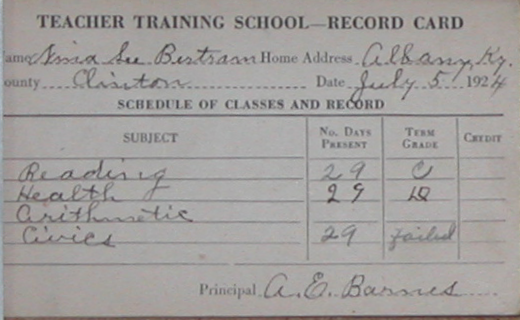 TEACHER TRAINING SCHOOL—RECORD CARD
ame Nina Sue Bertram Home Address Albany, Ky.
ounty Clinton Date July 5 1924
SCHEDULE OF CLASSES AND RECORD
SUBJECT No. Days Present Term Grade Credit
Reading 29 C
Health 29
Arithmetic
Civics 29 failed
Principal A. E. Barnes